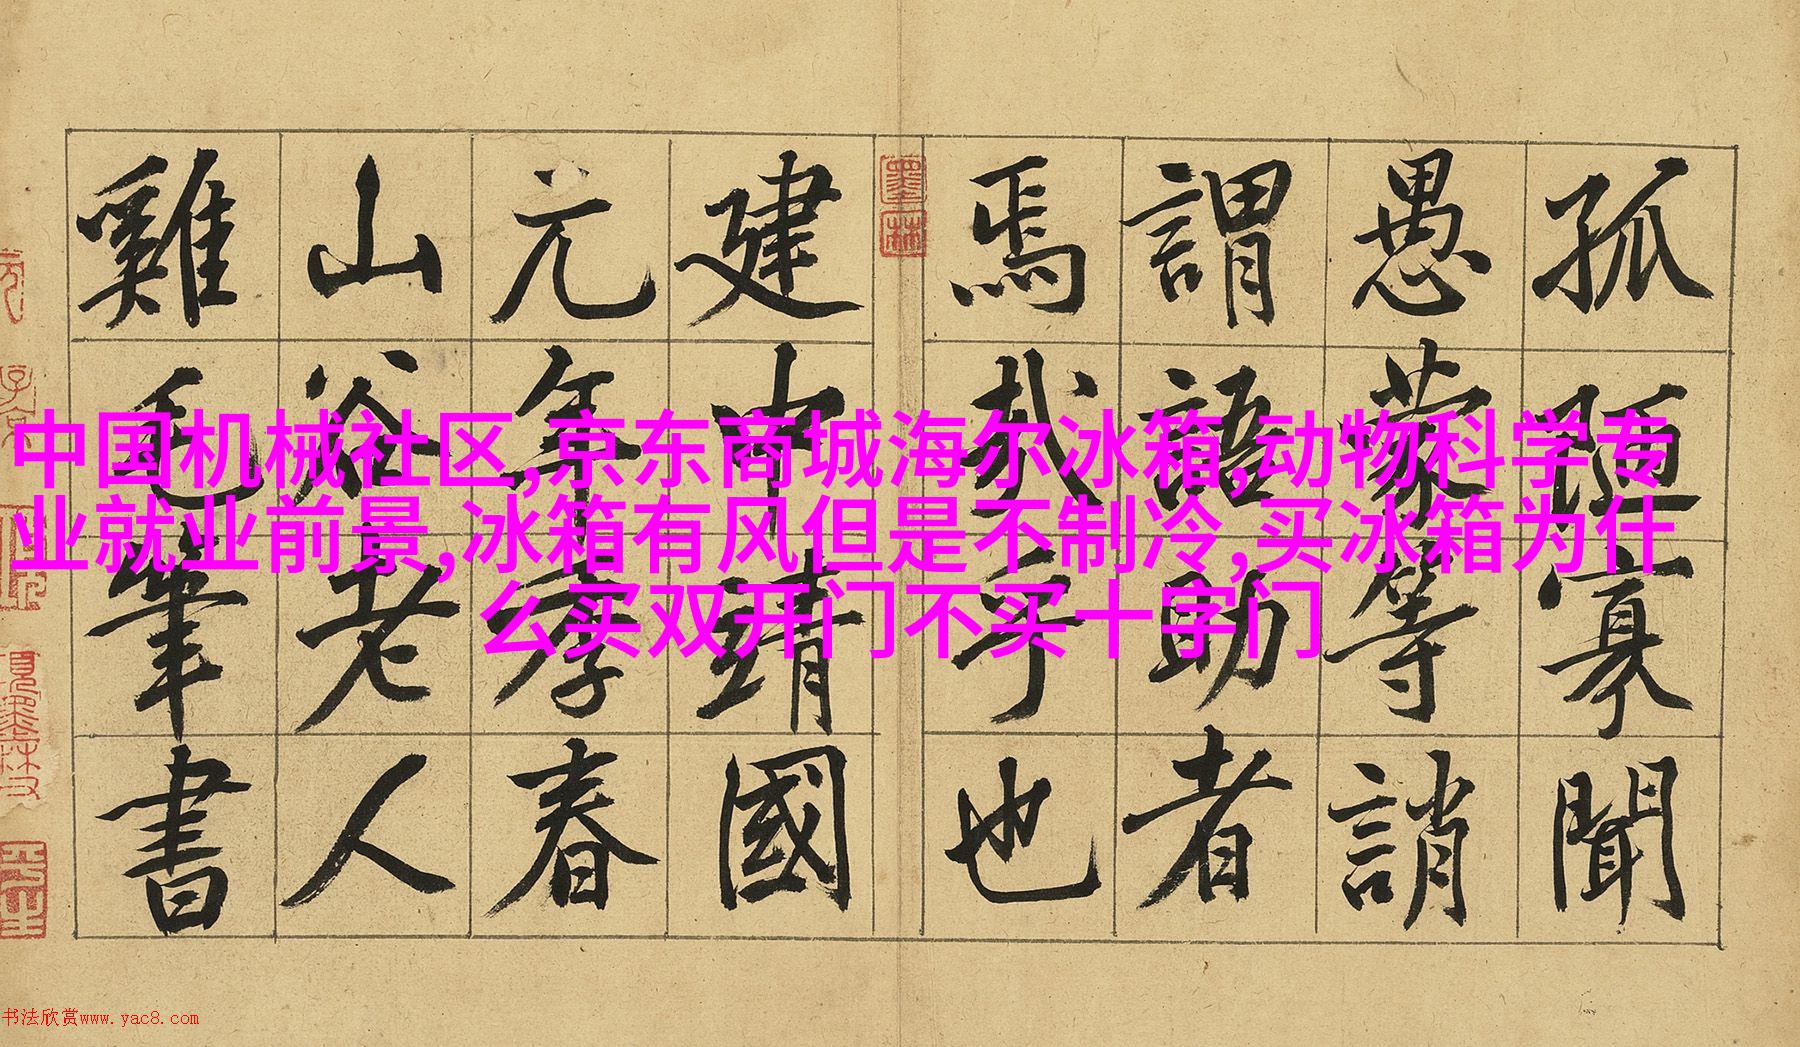 孤陋寡聞
愚蒙等誚
謂語助者
焉哉乎也
建中靖國
元年季春
山谷老人
雞毛筆書
墨林
中国机械社区,京东商城海尔冰箱,动物科学专
业就业前景,冰箱有风但是不制冷,买冰箱为什
么买双开门不买十字门
书法欣赏www.yac8.com